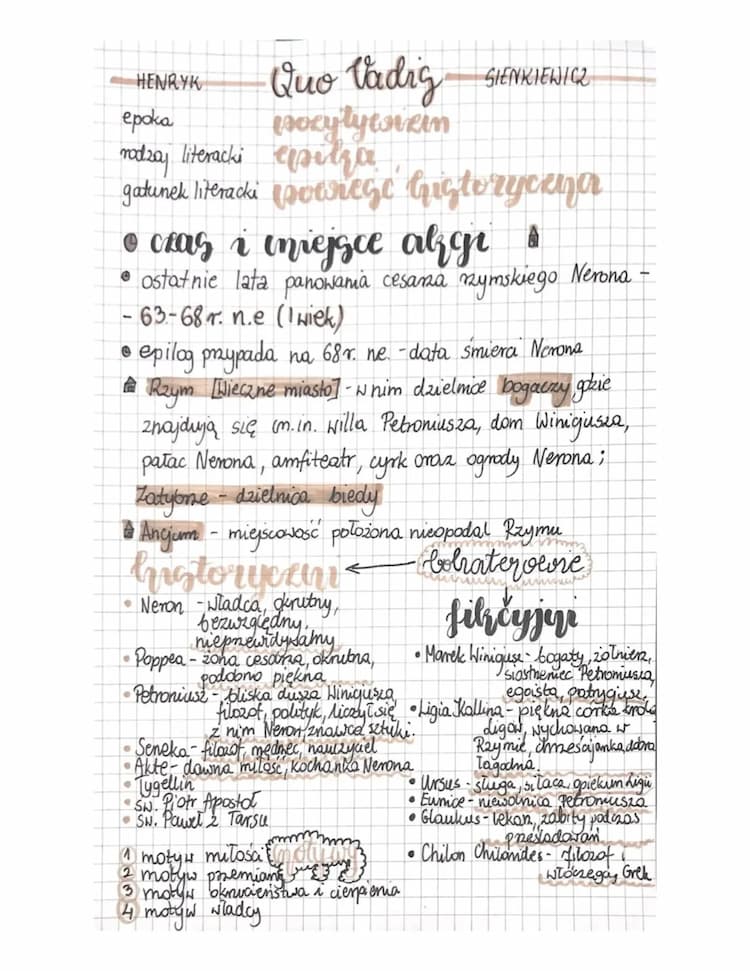 HENRYK Quo Vadis SIENKIEWICZ
epoka pozytywizm
rodzaj literacki epika
gatunek literacki powieść historyczna
czas i miejsce akcji
ostatnie lata panowania cesarza rzymskiego Nerona -
- 63-68 r. n.e (I wiek)
epilog przypada na 68 r. ne. - data śmierci Nerona
Rzym [Wieczne miasto] - w nim dzielnice bogaczy, gdzie
znajdują się m.in. willa Petroniusza, dom Winicjusza,
pałac Nerona, amfiteatr, cyrk oraz ogrody Nerona;
Zatybrze - dzielnica biedy
Ancjum - miejscowość położona nieopodal Rzymu
bohaterowie
historyczni
Neron - władca, okrutny,
bezwzględny,
nieprzewidywalny
Poppea - żona cesarza, okrutna,
podobno piękna
Petroniusz - bliska dusza Winicjusza,
filozof, polityk, liczył się
z nim Neron, znawca sztuki.
Seneka - filozof, mędrzec, nauczyciel
Akte - dawna miłość, kochanka Nerona
Tygellin
św. Piotr Apostoł
św. Paweł z Tarsu
fikcyjni
Marek Winicjusz - bogaty, żołnierz,
siostrzeniec Petroniusza,
egoista, patrycjusz
Ligia Kallina - piękna córka króla
Ligów, wychowana w
Rzymie, chrześcijanka, dobra
łagodna.
Ursus - sługa, siłacz, opiekun Ligii
Eunice - niewolnica Petroniusza
Glaukus - lekarz, zabity podczas
prześladowań
Chilon Chilonides - filozof i
włóczęga, Grek
motywy
1 motyw miłości
2 motyw przemiany
3 motyw okrucieństwa i cierpienia
4 motyw władcy